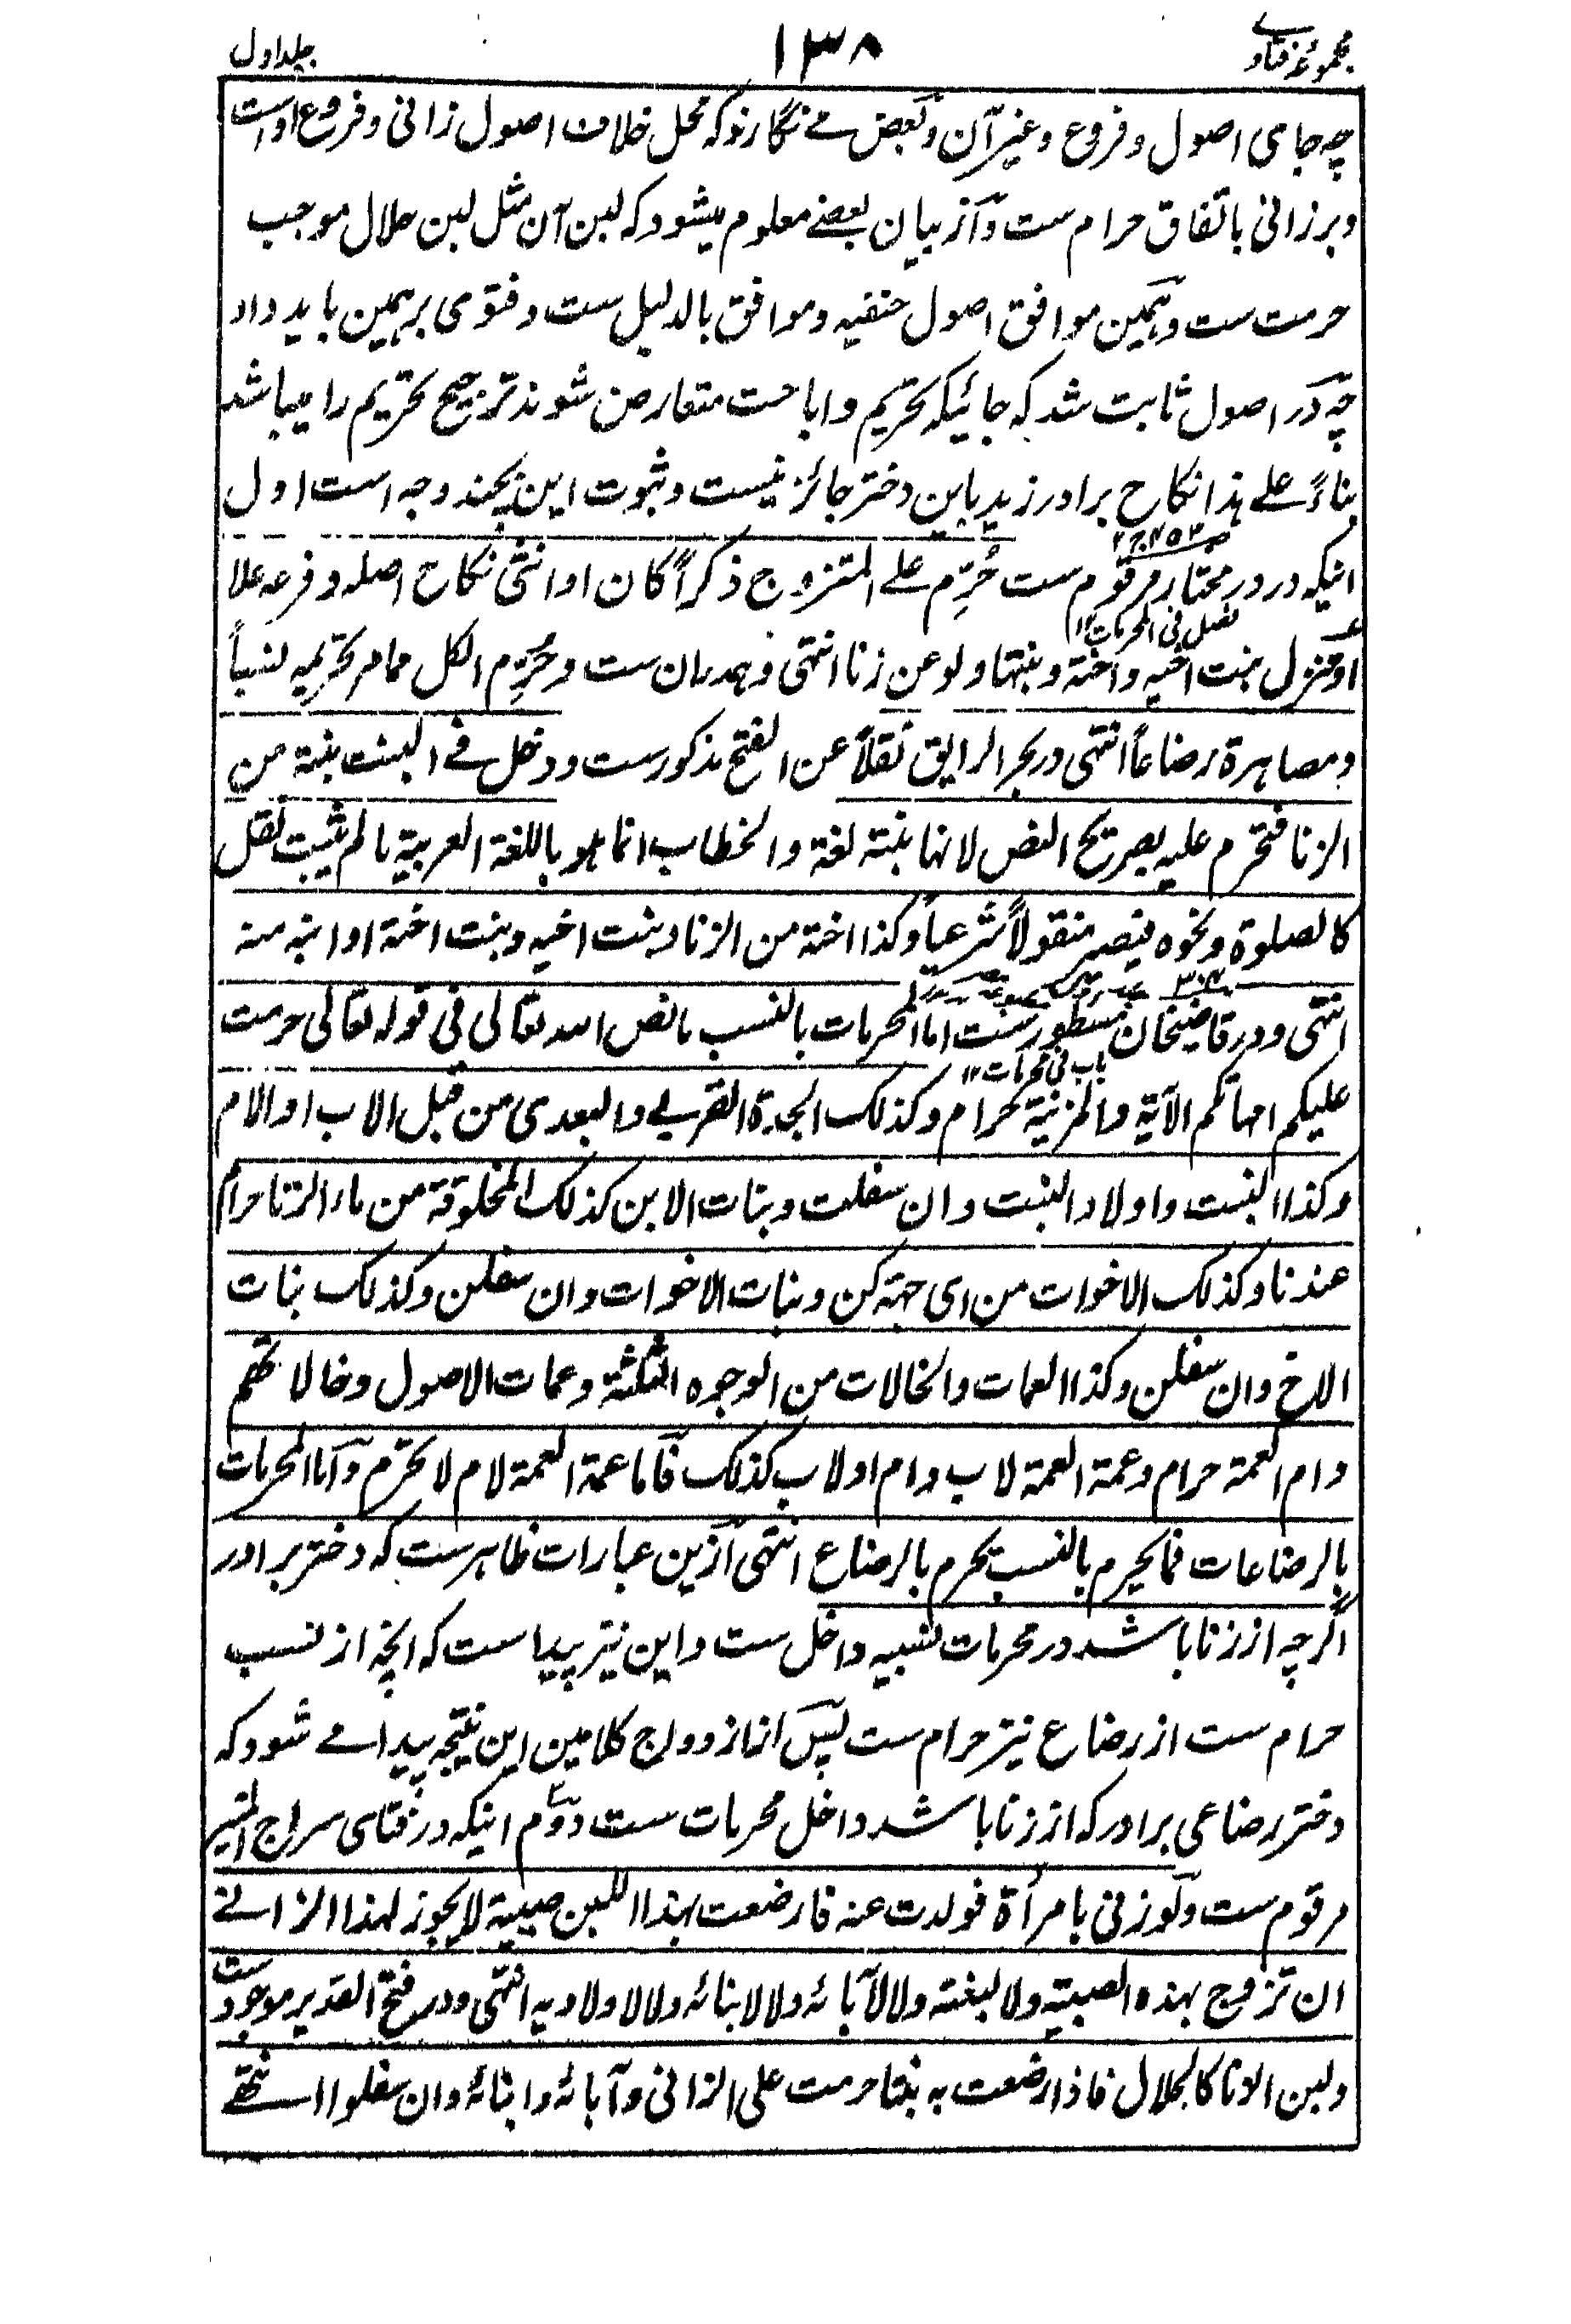 مجموعۂ فتاوے
۱۳۸
جلد اول
چہ جای اصول و فروع و غیر آن و بعض مے نگارند کہ محل خلاف اصول زانی و فروع اوست
و بر زانی باتفاق حرام ست و از بیان بعضے معلوم میشود کہ لبن آن مثل لبن حلال موجب
حرمت ست و ہمین موافق اصول حنفیہ و موافق بالدلیل ست و فتوی برہمین باید داد
چہ در اصول ثابت شد کہ جائیکہ تحریم و اباحت متعارض شوند ترجیح تحریم را میباشد
بناءً علے ہذا نکاح برادر زید باین دختر جائز نیست و ثبوت این بچند وجہ است اول
اینکہ در در مختار مرقوم ست حُرِّم علے المتزوج ذکراً کان او انثی نکاح اصلہ و فرعہ علا
فصل فی المحرمات ۱۲
او نزل بنت اخیہ و اختہ و بنتہا و لو عن زنا انتہی و ہمدران ست و حُرِّم الکل مما مر تحریمہ نسباً
و مصاہرۃ رضاعاً انتہی و در بحر الرایق نقلاً عن الفتح مذکور ست و دخل فے البنت بنتہ من
الزنا فتحرم علیہ بصریح النص لانہا بنتہ لغۃ و الخطاب انما ہو باللغۃ العربیۃ ما لم یثبت نقل
کالصلوۃ و نحوہ فیصیر منقولاً شرعیاً و کذا اختہ من الزنا و بنت اخیہ و بنت اختہ او ابنہ منہ
انتہی و در قاضیخان مسطور ست اما المحرمات بالنسب ما نص اللہ تعالی فی قولہ تعالی حرمت
باب فی محرمات ۱۲
علیکم امہاتکم الآیۃ و المزنیۃ کحرام و کذلک الجدۃ القربے و البعدی من قبل الاب او الام
و کذا البنت و اولاد البنت و ان سفلت و بنات الابن کذلک المخلوقۃ من ماء الزنا حرام
عندنا و کذلک الاخوات من ای جہۃ کن و بنات الاخوات و ان سفلن و کذلک بنات
الاخ و ان سفلن و کذا العمات و الخالات من الوجوہ الثلثۃ و عمات الاصول و خالاتہم
و ام العمۃ حرام و عمۃ العمۃ لاب و ام او لاب کذلک فاما عمۃ العمۃ لام لا تحرم و اما المحرمات
بالرضاعات فما یحرم بالنسب یحرم بالرضاع انتہی ازین عبارات ظاہر ست کہ دختر برادر
اگرچہ از زنا باشد در محرمات نسبیہ داخل ست و این نیز پیدا ست کہ انچہ از نسب
حرام ست از رضاع نیز حرام ست پس از ازدواج کلامین این نتیجہ پیدا مے شود کہ
دختر رضاعی برادر کہ از زنا باشد داخل محرمات ست دوم اینکہ در فتای سراج المنیر
مرقوم ست و لو زنی بامرأۃ فولدت عنہ فارضعت بہذا اللبن صبیۃ لا یجوز لہذا الزانے
ان تزوج بہذہ الصبیۃ و لا لبنتہ و لا لآبائہ و لا لابنائہ و لا لاولادہ انتہی و در فتح القدیر موجود ست
و لبن الزنا کالحلال فاذا ارضعت بہ بنتا حرمت علی الزانی و آبائہ و ابنائہ و ان سفلوا انتہے